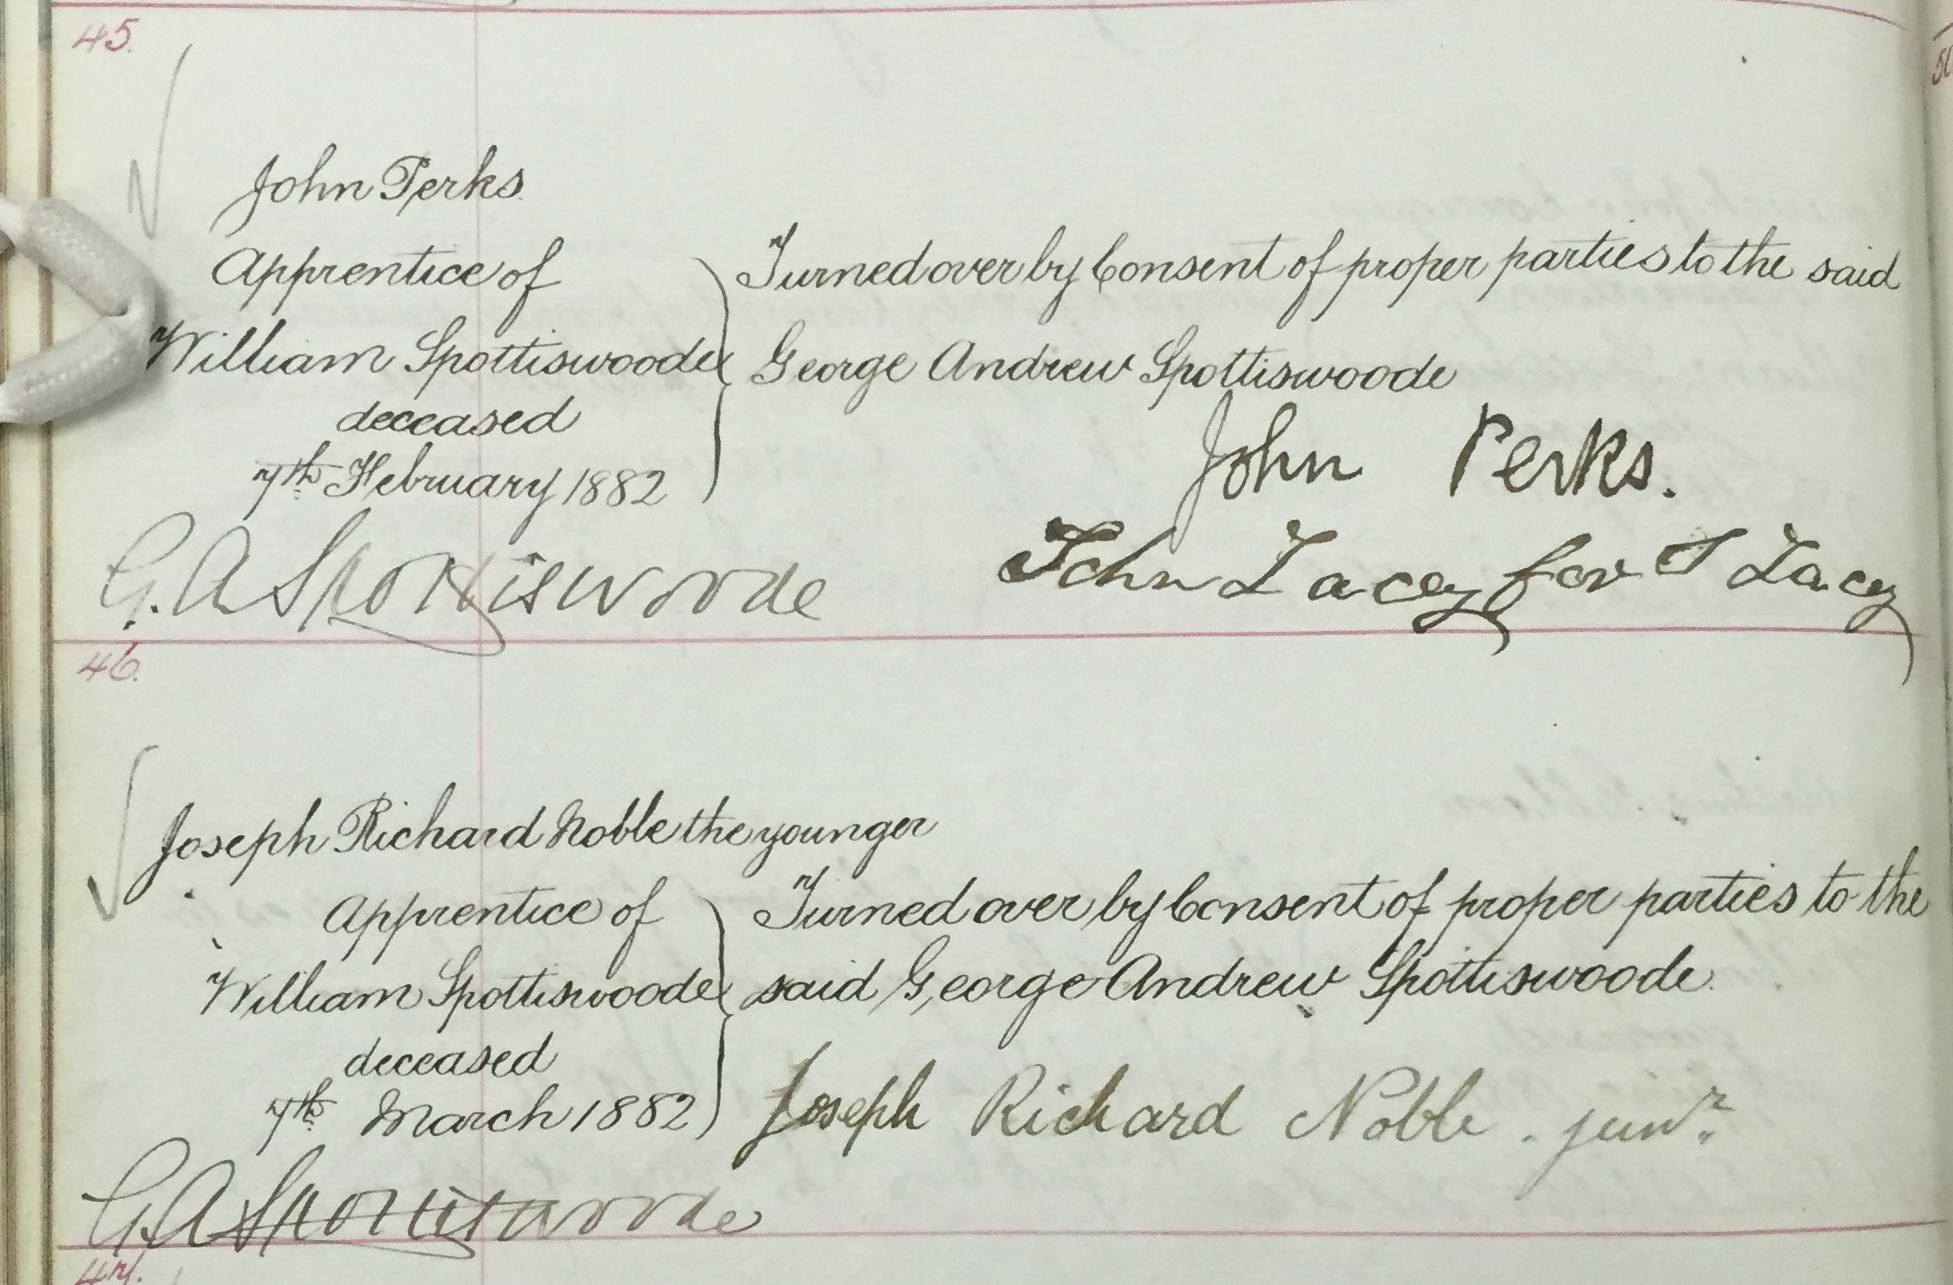 45.
John Perks
Apprentice of
William Spottiswoode
deceased
7th. February 1882
Turned over by Consent of proper parties to the said
George Andrew Spottiswoode
John Perks.
G. A Spottiswoode
John Lacey for T Lacey
46.
Joseph Richard Noble the younger
Apprentice of
William Spottiswoode
deceased
7th. March 1882
Turned over by Consent of proper parties to the
said George Andrew Spottiswoode.
Joseph Richard Noble. junr.
G. A Spottiswoode
47.